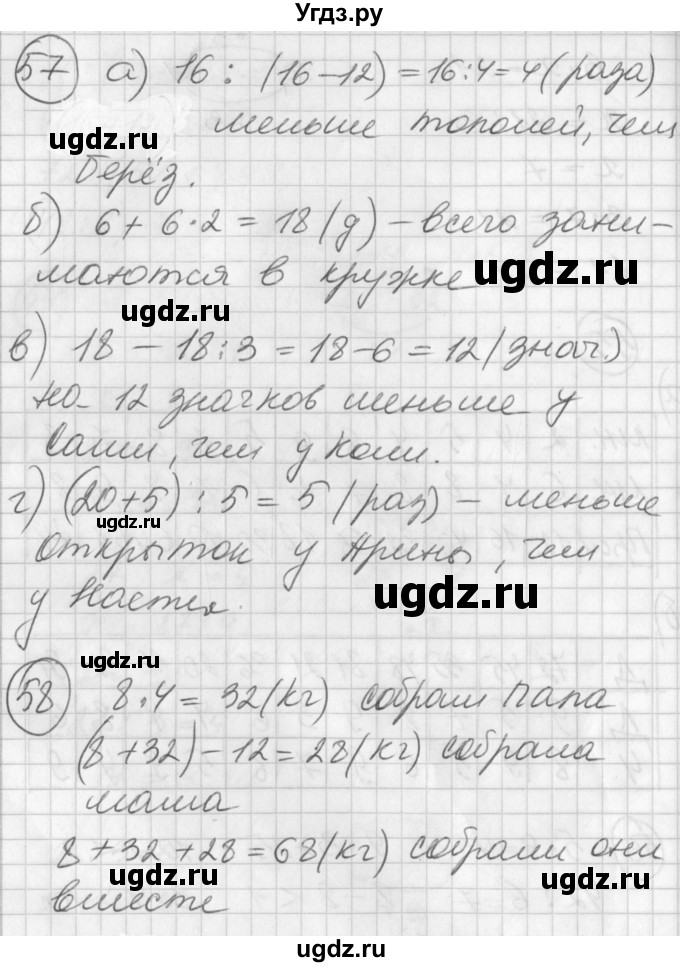 Угдз.ру
57 а) 16 : (16-12) = 16:4 = 4 (раза)
меньше тополей, чем
берёз.
ugdz.ru
б) 6 + 6·2 = 18 (д) - всего зани-
маются в кружке
ugdz.ru
ugdz.ru
в) 18 - 18:3 = 18-6 = 12 (знач.)
на 12 значков меньше у
Саши, чем у Коли.
г) (20+5) : 5 = 5 (раз) - меньше
ugdz.ru
открыток у Арины, чем
у Насти.
ugdz.ru
ugdz.ru
58 8·4 = 32 (кг) собрал папа
(8+32)-12 = 28 (кг) собрала
мама
8+32+28 = 68 (кг) собрали они
ugdz.ru
ugdz.ru
вместе
ugdz.ru